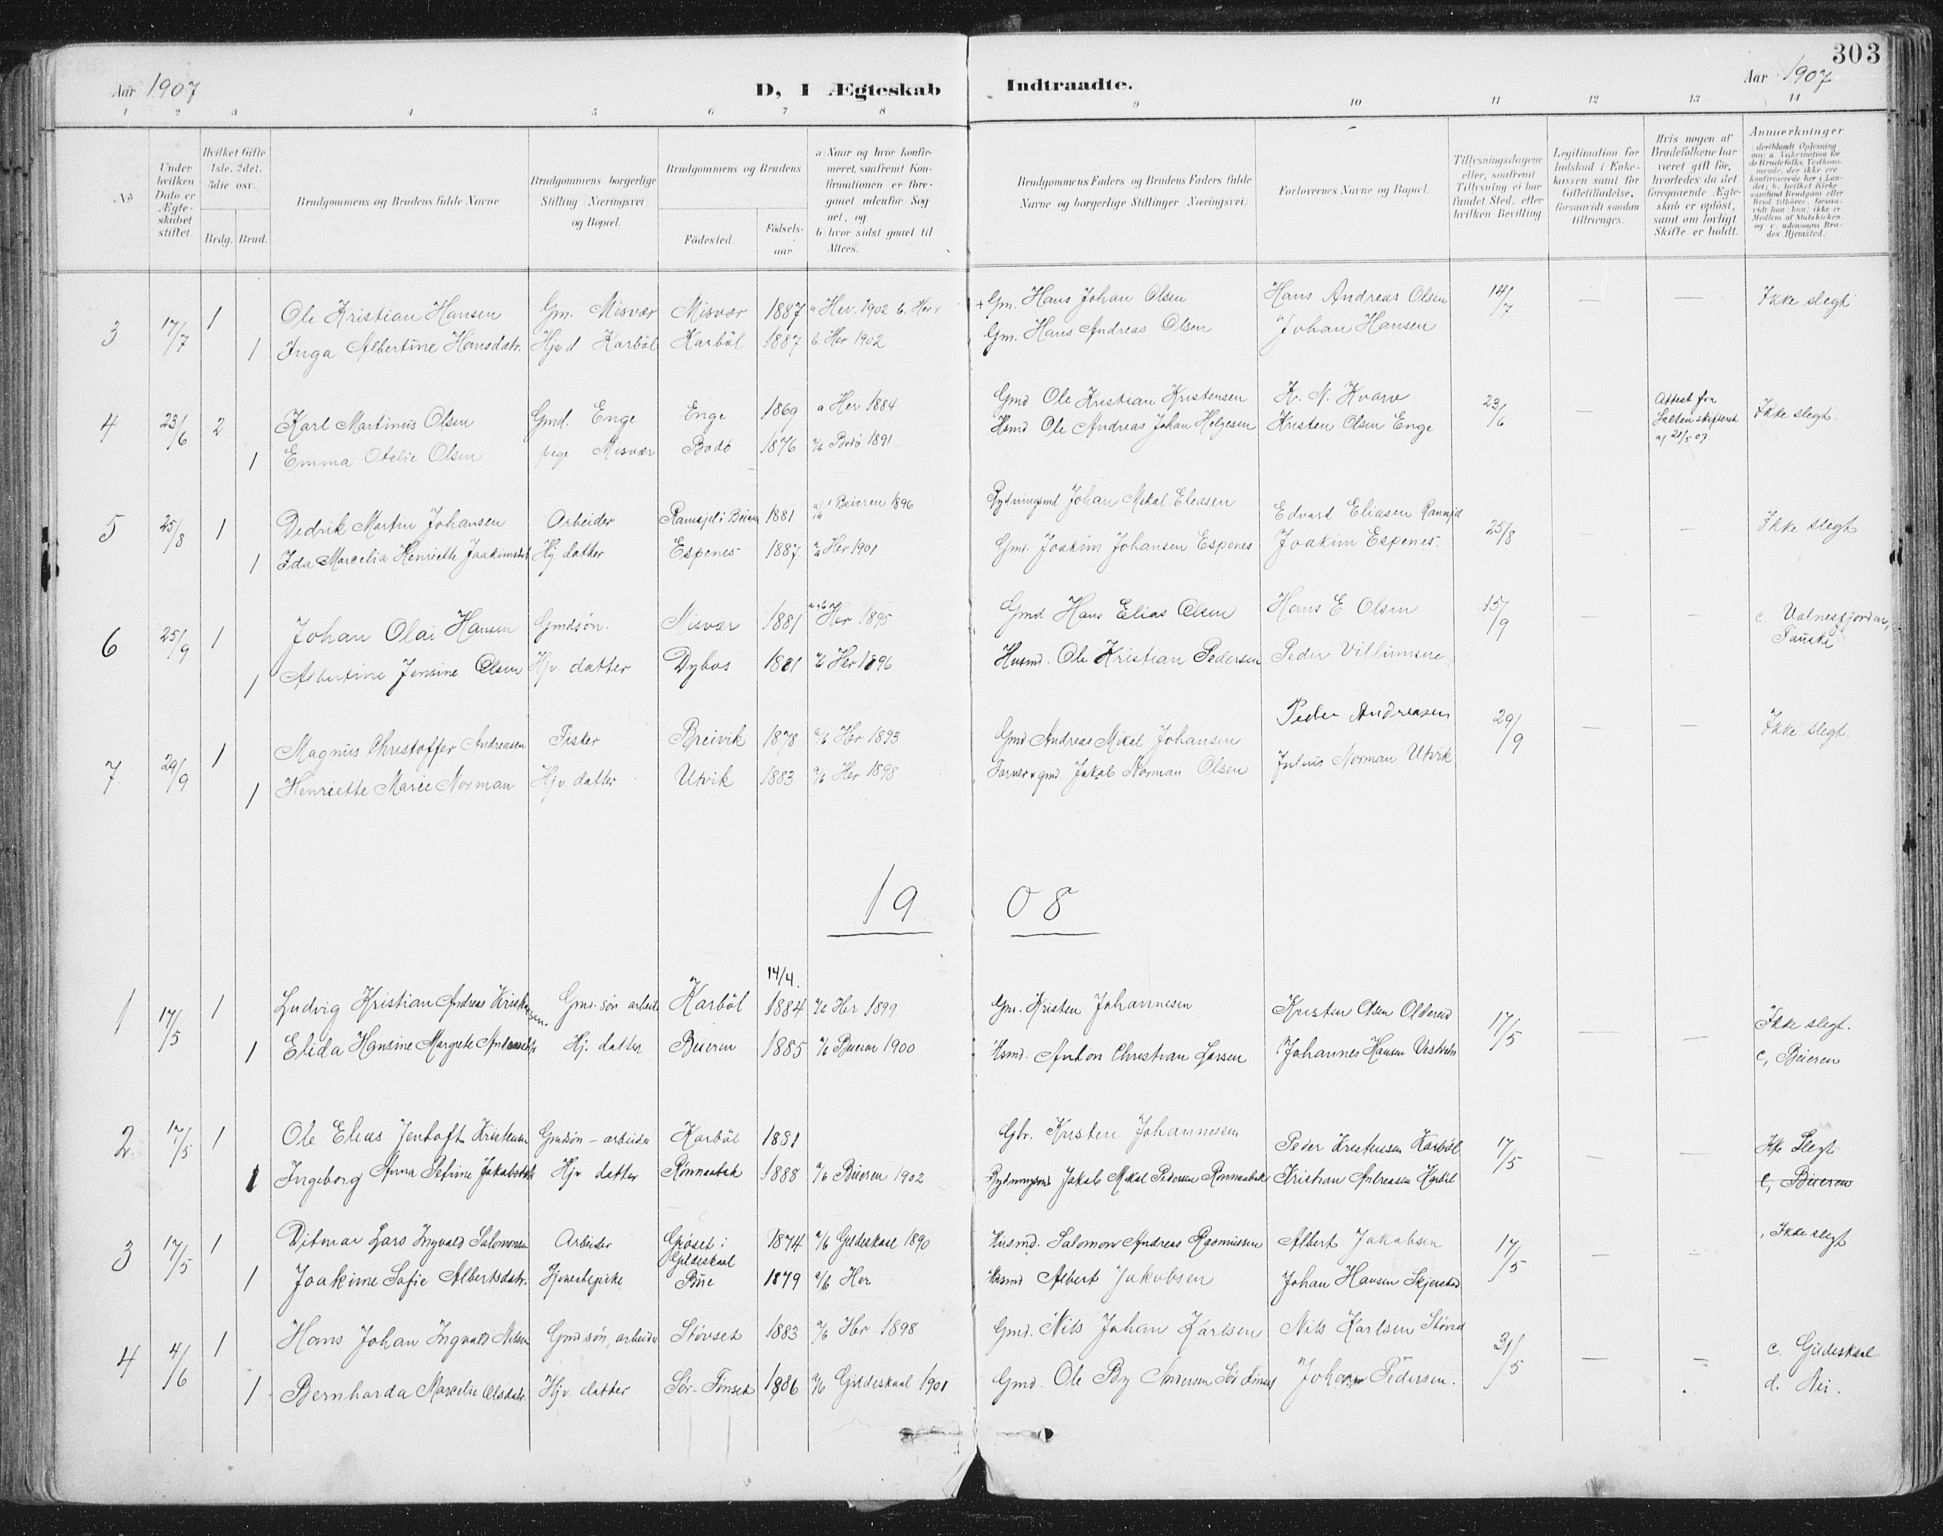 303
Aar 1907
D, I Ægteskab Indtraadte.
Aar 1907
1 2 3 4 5 6 7 8 9 10 11 12 13 14
No
Under hvilken Dato er Ægteskabet stiftet.
Hvilket Gifte 1ste, 2det, 3die osv.
Brdg. Brud.
Brudgommens og Brudens fulde Navne
Brudgommens borgerlige Stilling Næringsvei og Bopæl.
Brudgommens og Brudens
Fødested.
Fødselsaar.
a Naar og hvor konfirmeret, saafremt Konfirmationen er foregaaet udenfor Sognet, og
b hvor sidst gaaet til Alters.
Brudgommens Faders og Brudens Faders fulde Navne og borgerlige Stillinger Næringsvei
Forlovernes Navne og Bopæl.
Tillysningsdagene eller, saafremt Tillysning ei har fundet Sted, efter hvilken Bevilling.
Legitimation for Indskud i Enkekassen samt for Giftetilladelse, forsaavidt saadan tiltrænges.
Hvis nogen af Brudefolkene har været gift før, hvorledes da det foregaaende Ægteskab er opløst, samt om lovligt Skifte er holdt.
Anmærkninger
3 17/7 1 Ole Kristian Hansen Gm. Misvær Misvær 1887 a Her. 1902 b. Her Gm. Hans Johan Olsen Hans Andreas Olsen 14/7 — — Ikke slegt
1 Inga Albertine Hansdatr. Hjv. d Karbøl Karbøl 1887 b. Her 1902 Gm. Hans Andreas Olsen Johan Hansen
4 23/6 2 Karl Martinus Olsen Gmd. Enge Enge 1869 a Her 1884 Gmd Ole Kristian Kristensen K. N. Kvarv 23/6 — Attest fra Salten skifteret af 21/5 07 Ikke slegt.
1 Emma Otelie Olsen pige Misvær Bodø 1876 a/b Bodø 1891 Hsmd Ole Andreas Johan Helgesen Kristen Olsen Enge
5 25/8 1 Dedrik Martin Johansen Arbeider Ramsjel i Beieren 1881 a/b Beieren 1896 Rydningsmd Johan Mikal Eliasen Edvard Eliasen 25/8 — Ikke slegt
1 Ida Marcelia Henriette Joakimsdt Hj. datter Espenes 1887 a/b Her 1901 Gmd. Joakim Johansen Espenes Joakim Espenes.
6 25/9 1 Johan Olai Hansen Gmdsøn. Misvær 1881 a + b Her 1895 Gmd Hans Elias Olsen Hans E. Olsen 15/9 — — c. Valnesfjorden, Fauske
1 Albertine Jensine Olsen Hjv. datter Dybos 1881 a/b Her 1896 Husmd. Ole Kristian Pedersen Peder
7 29/9 1 Magnus Christoffer Andreasen Fisker Breivik 1878 a/b Her 1893 Gmd Andreas Mikal Johansen Peder Andreasen 29/9 — — Ikke slegt.
1 Henriette Marie Norman Hjv. datter Utvik 1883 a/b Her 1898 gmd. Jakob Norman Olsen Julius Norman Utvik
19 08
1 17/5 1 Ludvig Kristian Andreas Kristensen. Gmd. søn arbeider Karbøl 14/4. 1884 a/b Her 1899 Gm. Kristen Johannesen Kristen Olsen Oldereid 17/5 — — Ikke slegt.
1 Elida Hansine Margrete Hj. datter Beieren 1885 a/b Beieren 1900 Hsmd. Anton Christian Larsen Johannes Hansen c, Beieren
2. 17/5 1 Ole Elias Jentoft Kristensen Gmdsøn – arbeider Karbøl 1881 Gbr. Kristen Johannesen Peder Kristensen Karbøl 17/5 — — Ikke Slegt
1 Ingeborg Anna Petrine Jakobsdt Hjv datter Rømnesbek 1888 a/b Beieren 1902 Jakob Mikal Pedersen Kristian Andreasen Karbøl c, Beieren
3 17/5 1 Ditmar Lars Ingvald Salomonsen Arbeider Grøset i Gildeskaal 1874 a/b Gildeskaal 1890 Husmd. Salomon Andreas Rasmussen Albert Jakobsen 17/5 — Ikke slegt
1 Joakime Sofie Albertsdatr. 1879 a/b Her Husmd Albert Jakobsen Johan Hansen Skjerstad
4 4/6 1 Hans Johan Ingvald Nilsen Gmd søn, arbeider Støvset 1883 a/b Her 1898 Gmd. Nils Johan Karlsen Nils Karlsen 31/5 — — c. Gildeskaal
1 Bernharda Marcelie Olsdatr. Hjv. datter Sør-Finset 1886 a/b Gildeskaal 1901 Gmd. Ole By Andersen Sør Finset Johan Pedersen. d. Nei.